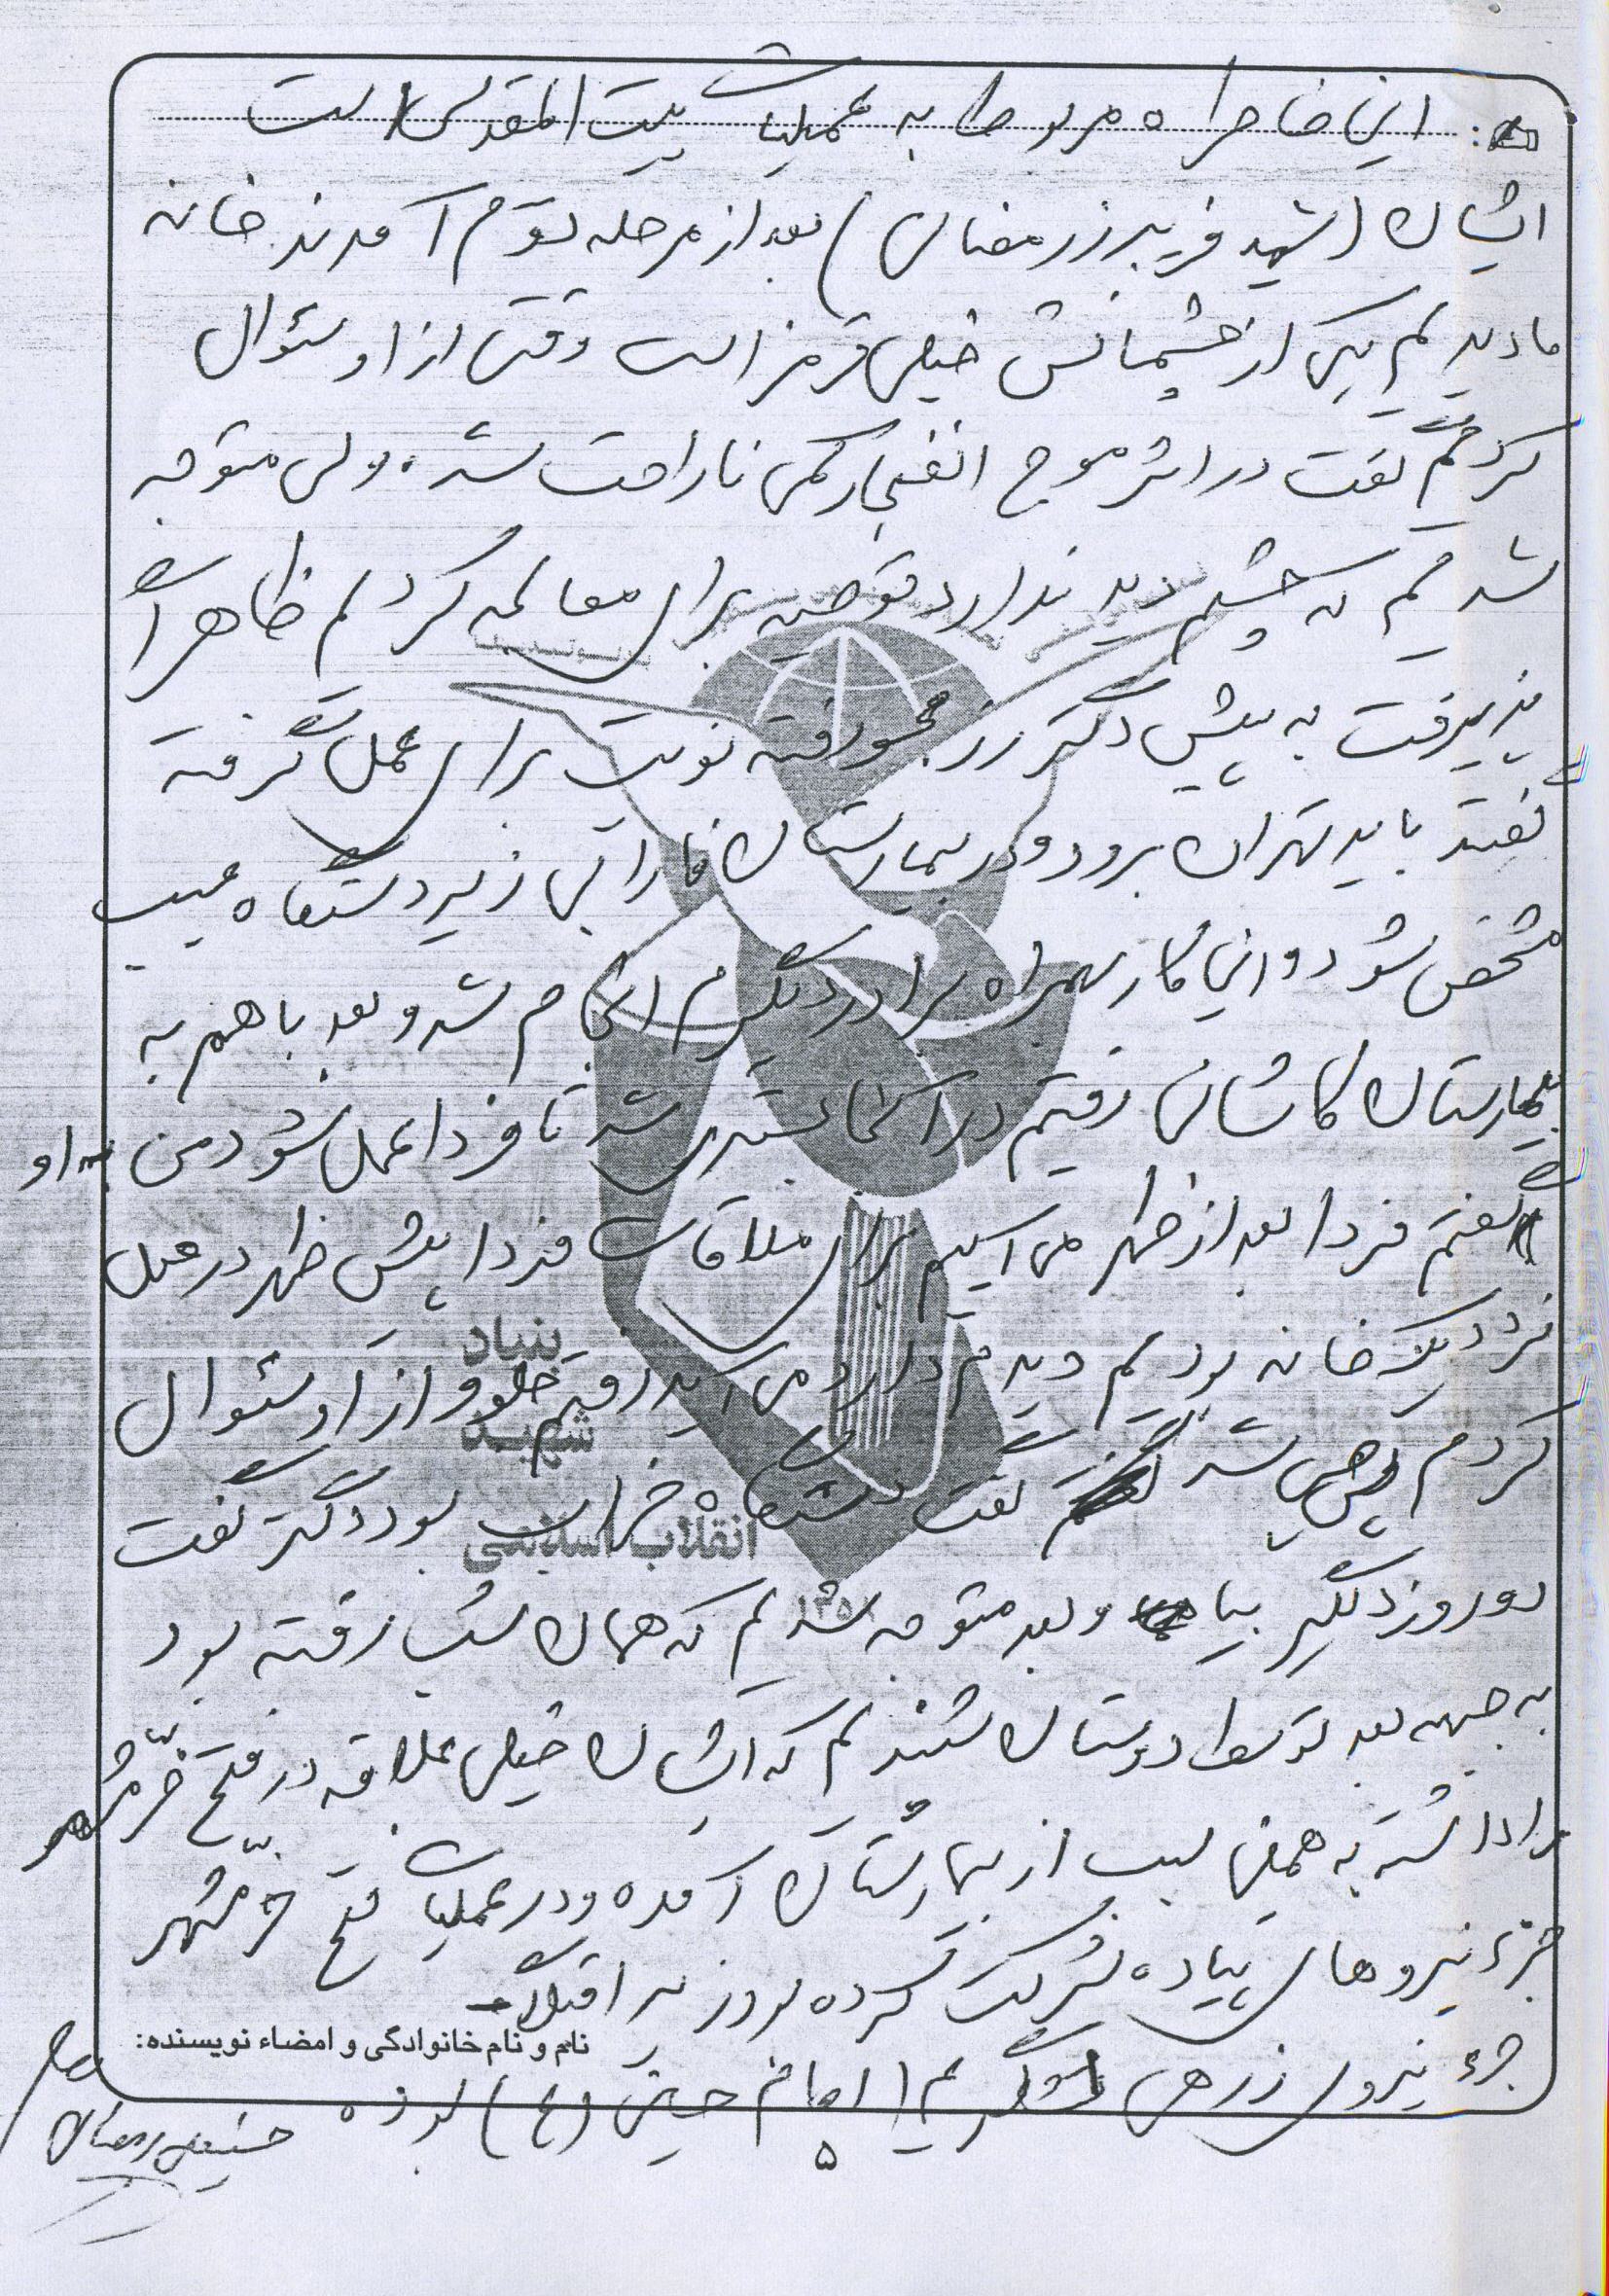 این خاطره مربوط به عملیات بیت المقدس است
ایشان (شهید فریبرز رمضانی) بعد از مرحله سوم آمدند خانه
ما دیدیم یکی از چشمانش خیلی قرمز است وقتی از او سئوال
کردیم گفت در اثر موج انفجار کمی ناراحت شده ولی متوجه
شدیم که چشم دید ندارد توصیه برای معالجه کردیم ظاهراً
پذیرفت به پیش دکتر رنجبر رفته نوبت برای عمل گرفته
گفتند باید تهران برود و در بیمارستان فارابی زیر دستگاه عیب
مشخص شود و این کار همراه برادر دیگرم انجام شد و بعد با هم به
بیمارستان کاشانی رفتیم در آنجا بستری شد تا فردا عمل شود من به او
گفتم فردا بعد از ظهر می آییم برای ملاقات فردا پیش ظهر در محل
نزدیک خانه بودیم دیدم دارد می آید رفتم جلو و از او سئوال
کردم چی شد گفت دستگاه خراب بود دکتر گفت
دو روز دیگر بیا و بعد متوجه شدیم که همان شب رفته بود
به جبهه بعد توسط دوستان شنیدیم که ایشان خیلی علاقه در فتح خرّمشهر
را داشته به همین سبب از بیمارستان آمده و در عملیات فتح خرّمشهر
جزء نیروهای پیاده شرکت کرده بود
جزء نیروی زرهی لشگر امام حسین (ع) بوده
نام و نام خانوادگی و امضاء نویسنده:
حسینعلی رمضانی
۵
بنیاد
شهید
انقلاب اسلامی
۱۳۵۸